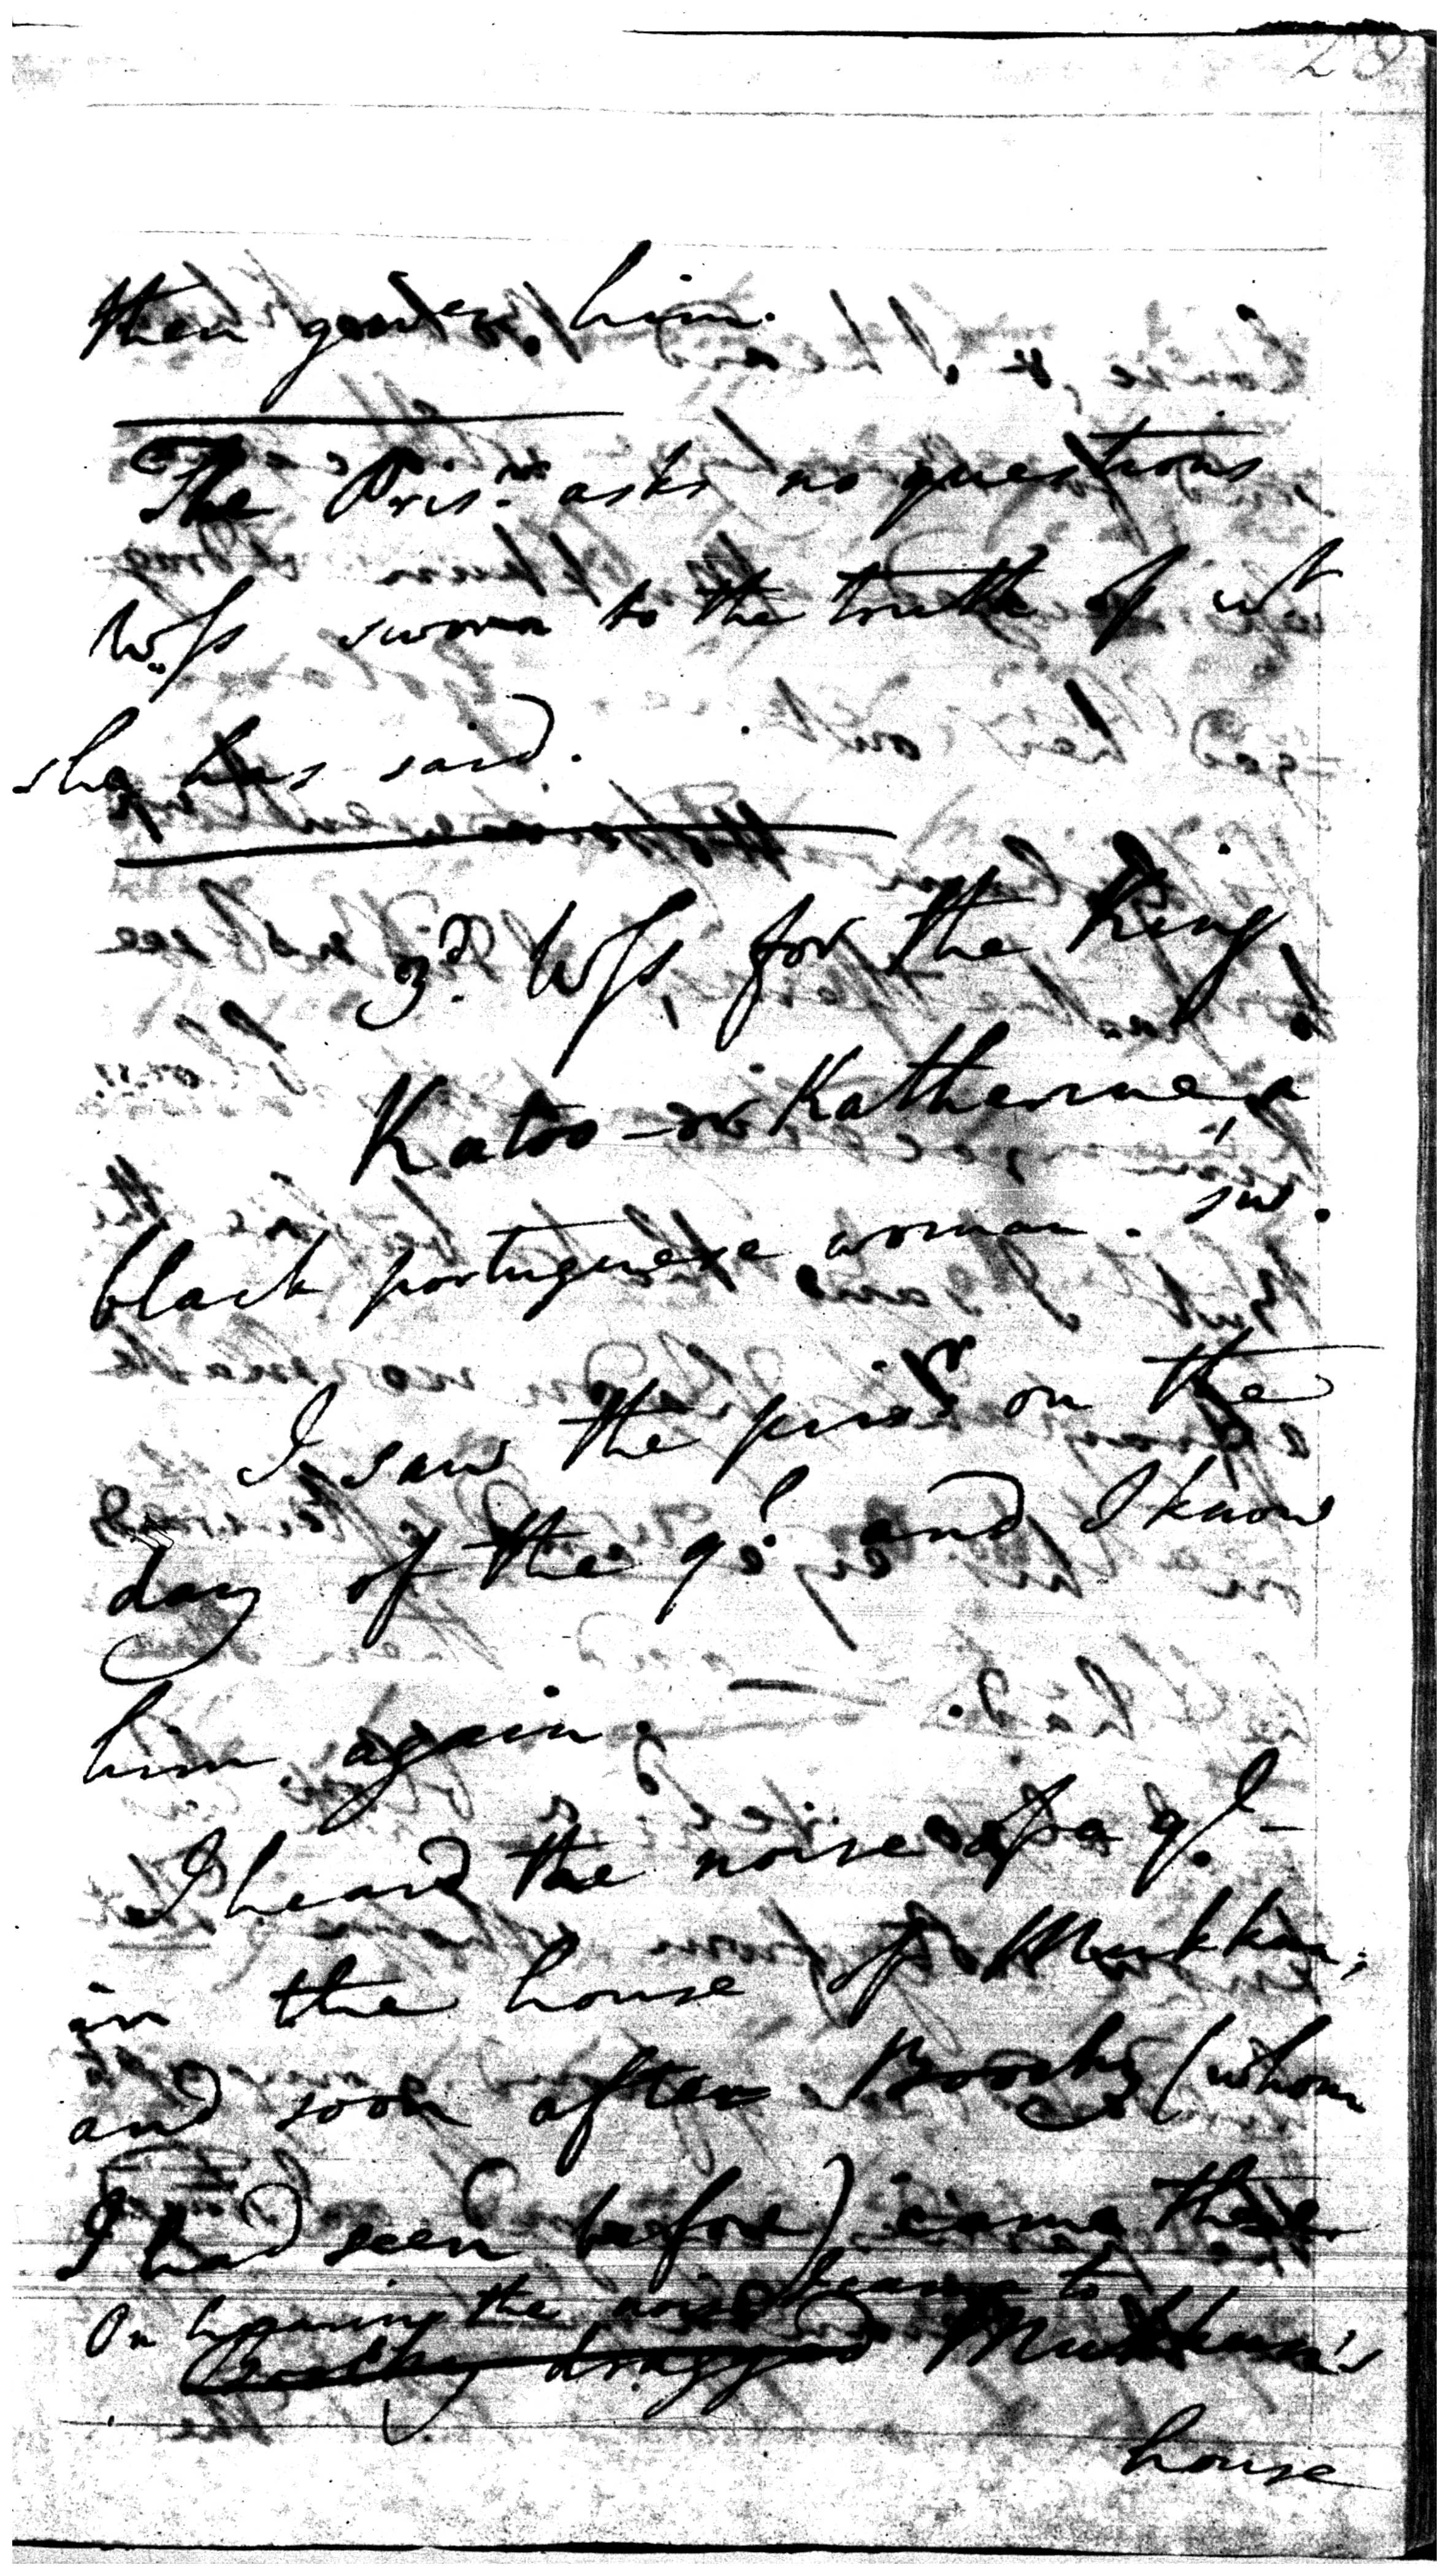 28
then  him.
The Pris.r asks no questions
Wss sworn to the truth of wt
she has said.
3.d Wss, for the King,
Katoo - or Katherine, a
black portuguese woman. sw.
I saw the pris.r on the
day of the q.l and I know
him again.
I heard the noise of a q.l -
in the house of Mukkun;
and soon after Booshy (whom
I had seen before) came there
On hearing the noise I came to
Booshy dragged Mukkun's
house